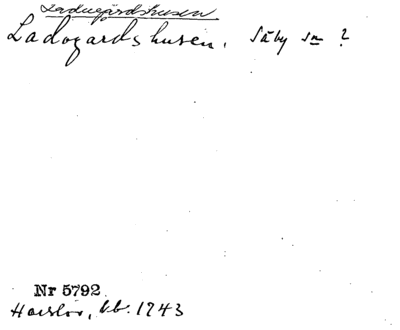 Ladugårdshusen
Ladogardshusen. Säby sn ?
Nr 5792
kb. 1743